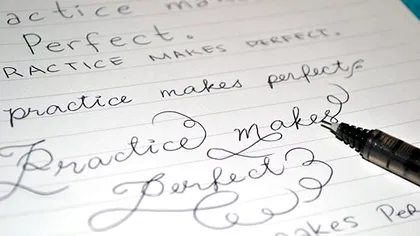 actice ma
Perfect.
RACTICE MAKES PERFECT.
practice makes perfect
Practice makes
Perfect
makes Per